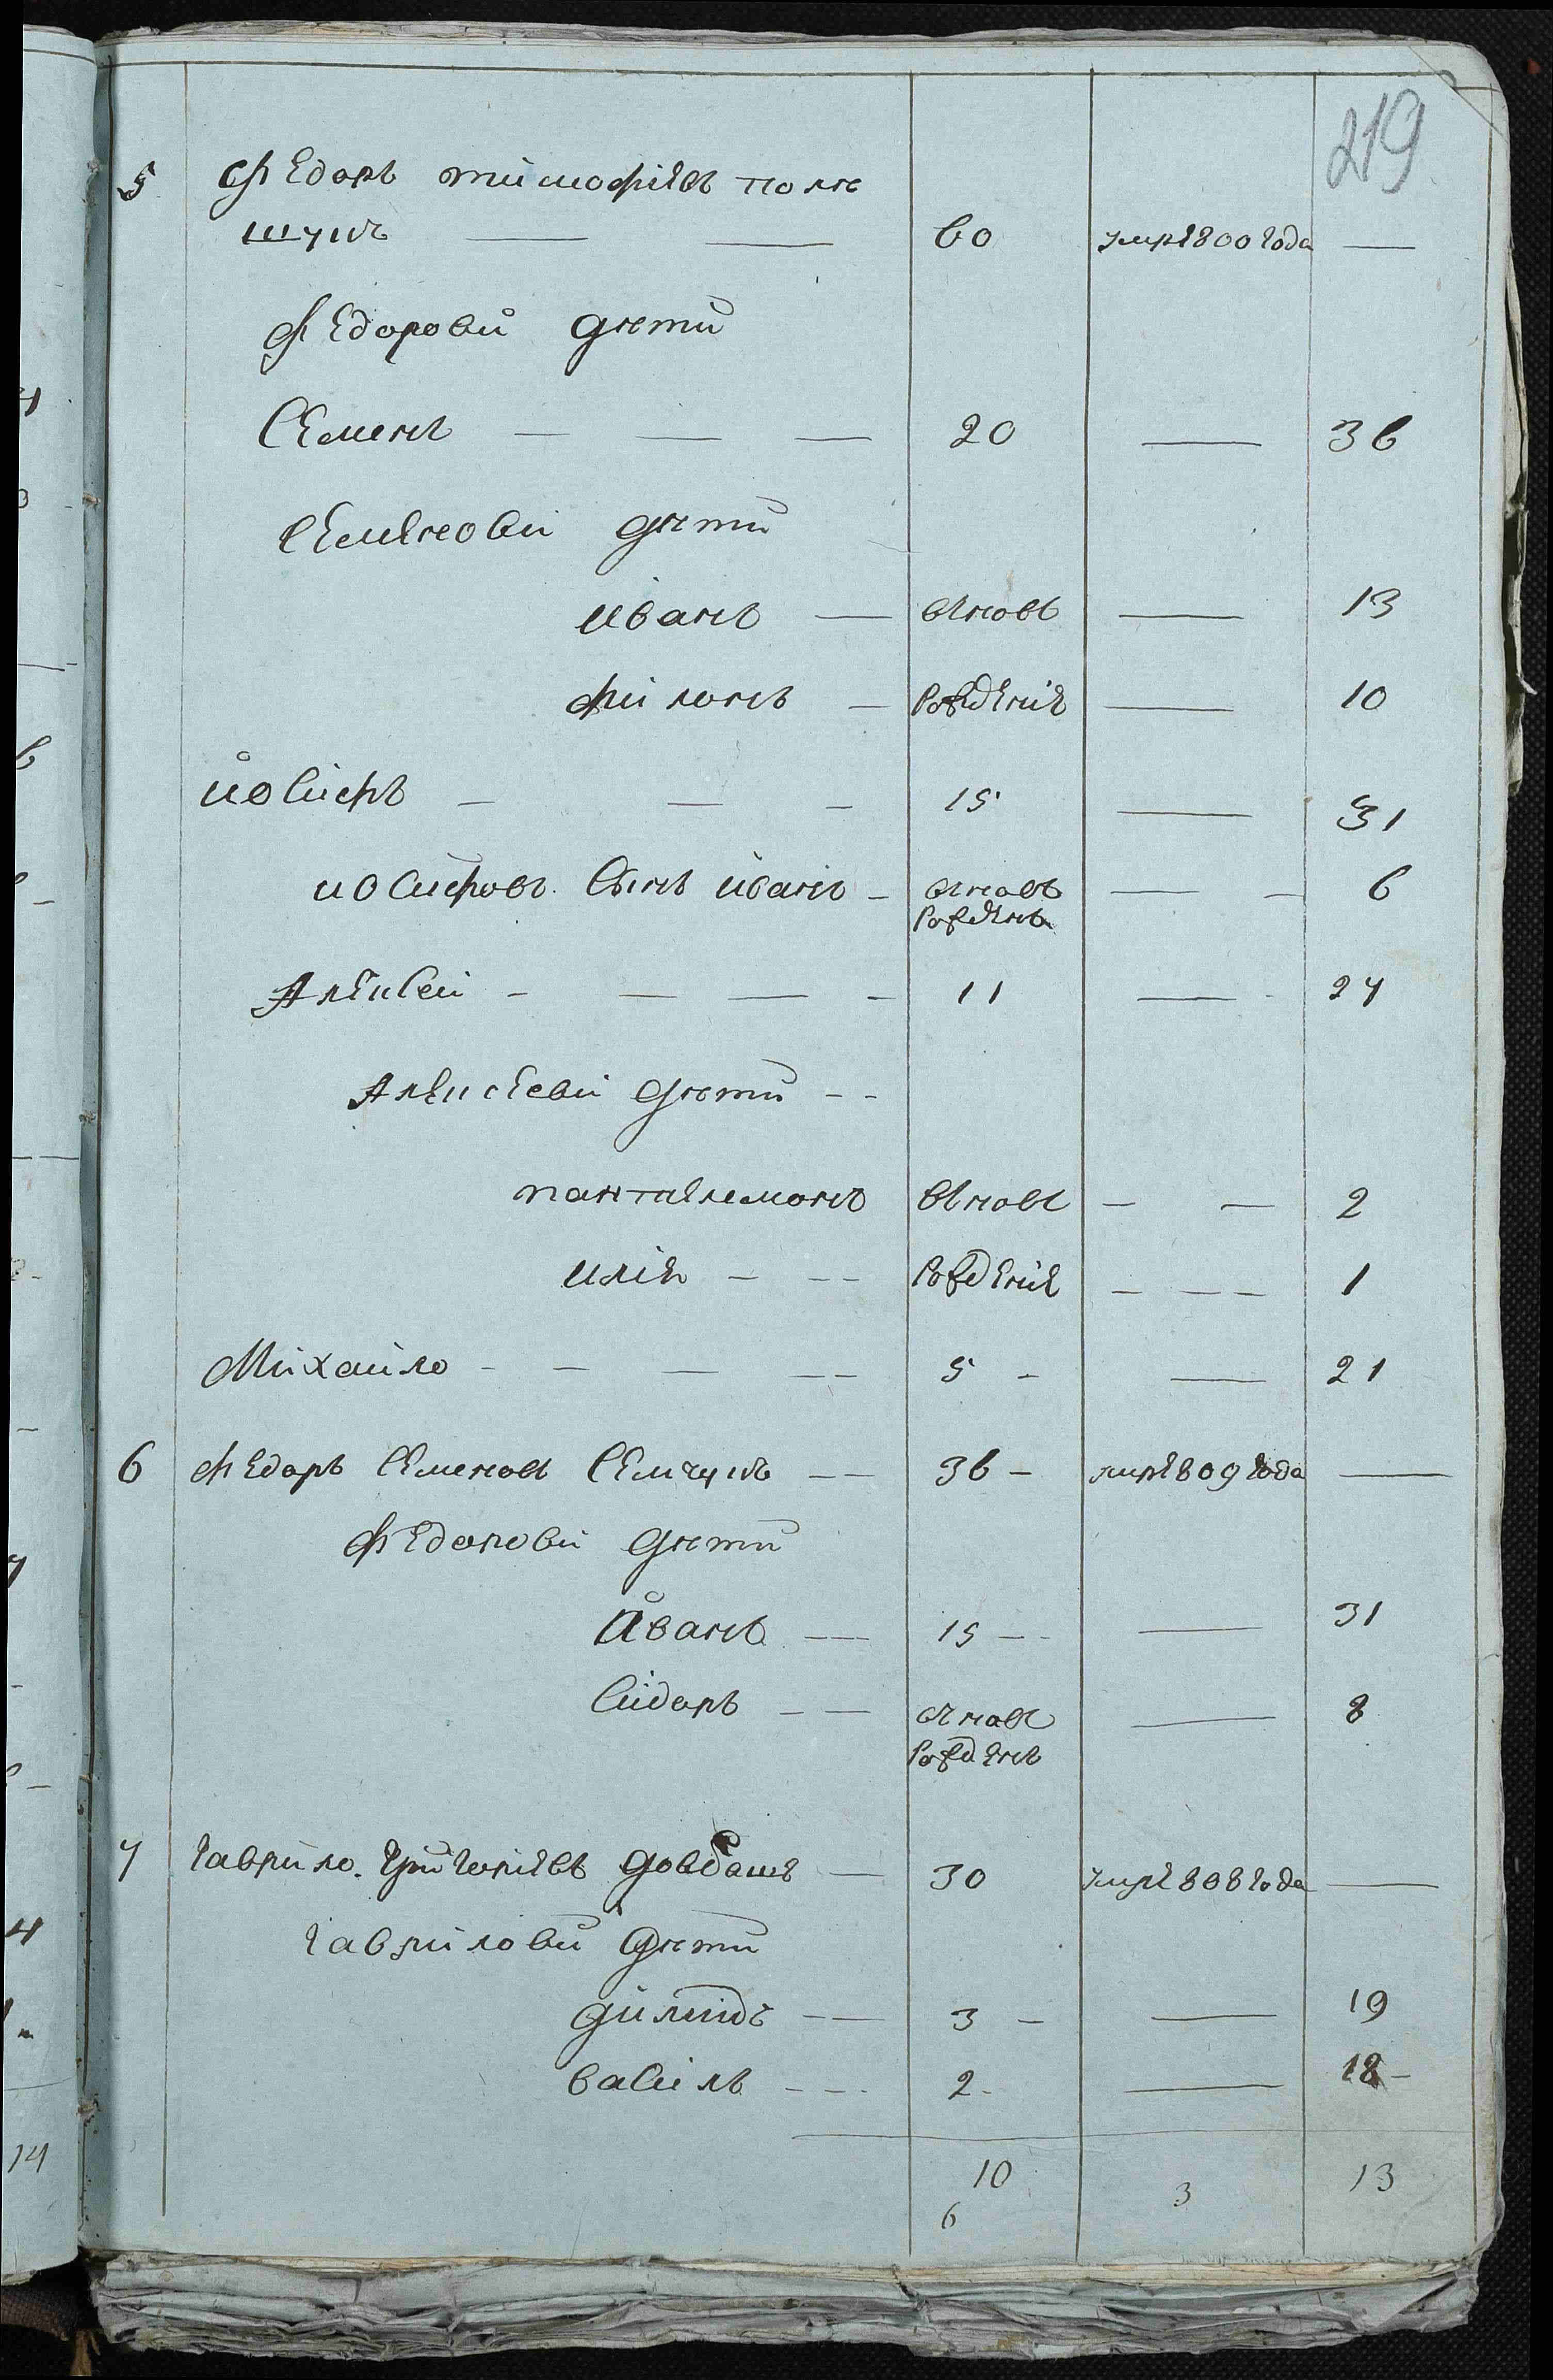 219
5 Федоръ тимофіевъ полѣ
шукъ — — 60 умре 800 года —
Федорови дѣти
Семенъ — — — 20 — 36
Семенови дѣти
иванъ — вновъ — 13
филонъ — рожденіе — 10
иосифъ — — — 15 — 31
иосифовъ сынъ иванъ — вновъ — — 6
рожденъ
Алексей — — — — 11 — 27
Алексееви дѣти — —
пантелемонъ вновь — — 2
илія — — рожденіе — — — 1
Михайло — — — — 5 — — 21
6 федоръ Семеновъ Семчукъ — — 36 — умре 809 года —
Федорови дѣти
иванъ — 15 — — 31
Сидоръ — — вновъ — 8
рожденъ
7 гаврило григориевъ довбашъ — 30 умре 808 года —
гавриловы дѣти
димидъ — 3 — — 19
василь — — 2 — 18 —
10 3 13
6
4
14